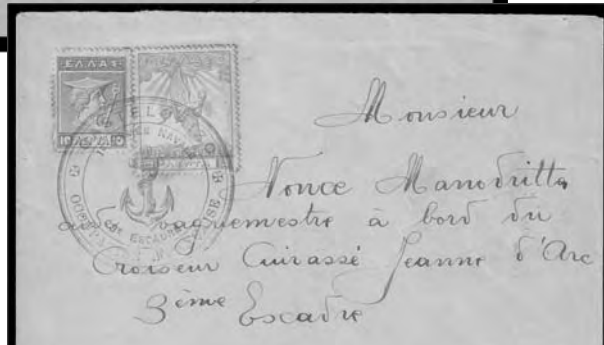 ΕΛΛΑΣ
Monsieur
Nonce Manodritta
vaguemestre à bord du
Croiseur Cuirassé Jeanne d'Arc
3ème Escadre